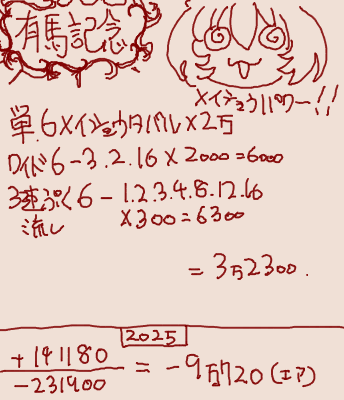 有馬記念
メイショウパワー!!
単.6メイショウタバル×2万
ワイド6-3.2.16×2000=6000
3連ぷく6-1.2.3.4.8.12.16
流し ×300=6300
=3万2300.
2025
+141180
-231900
=-9万720(エア)